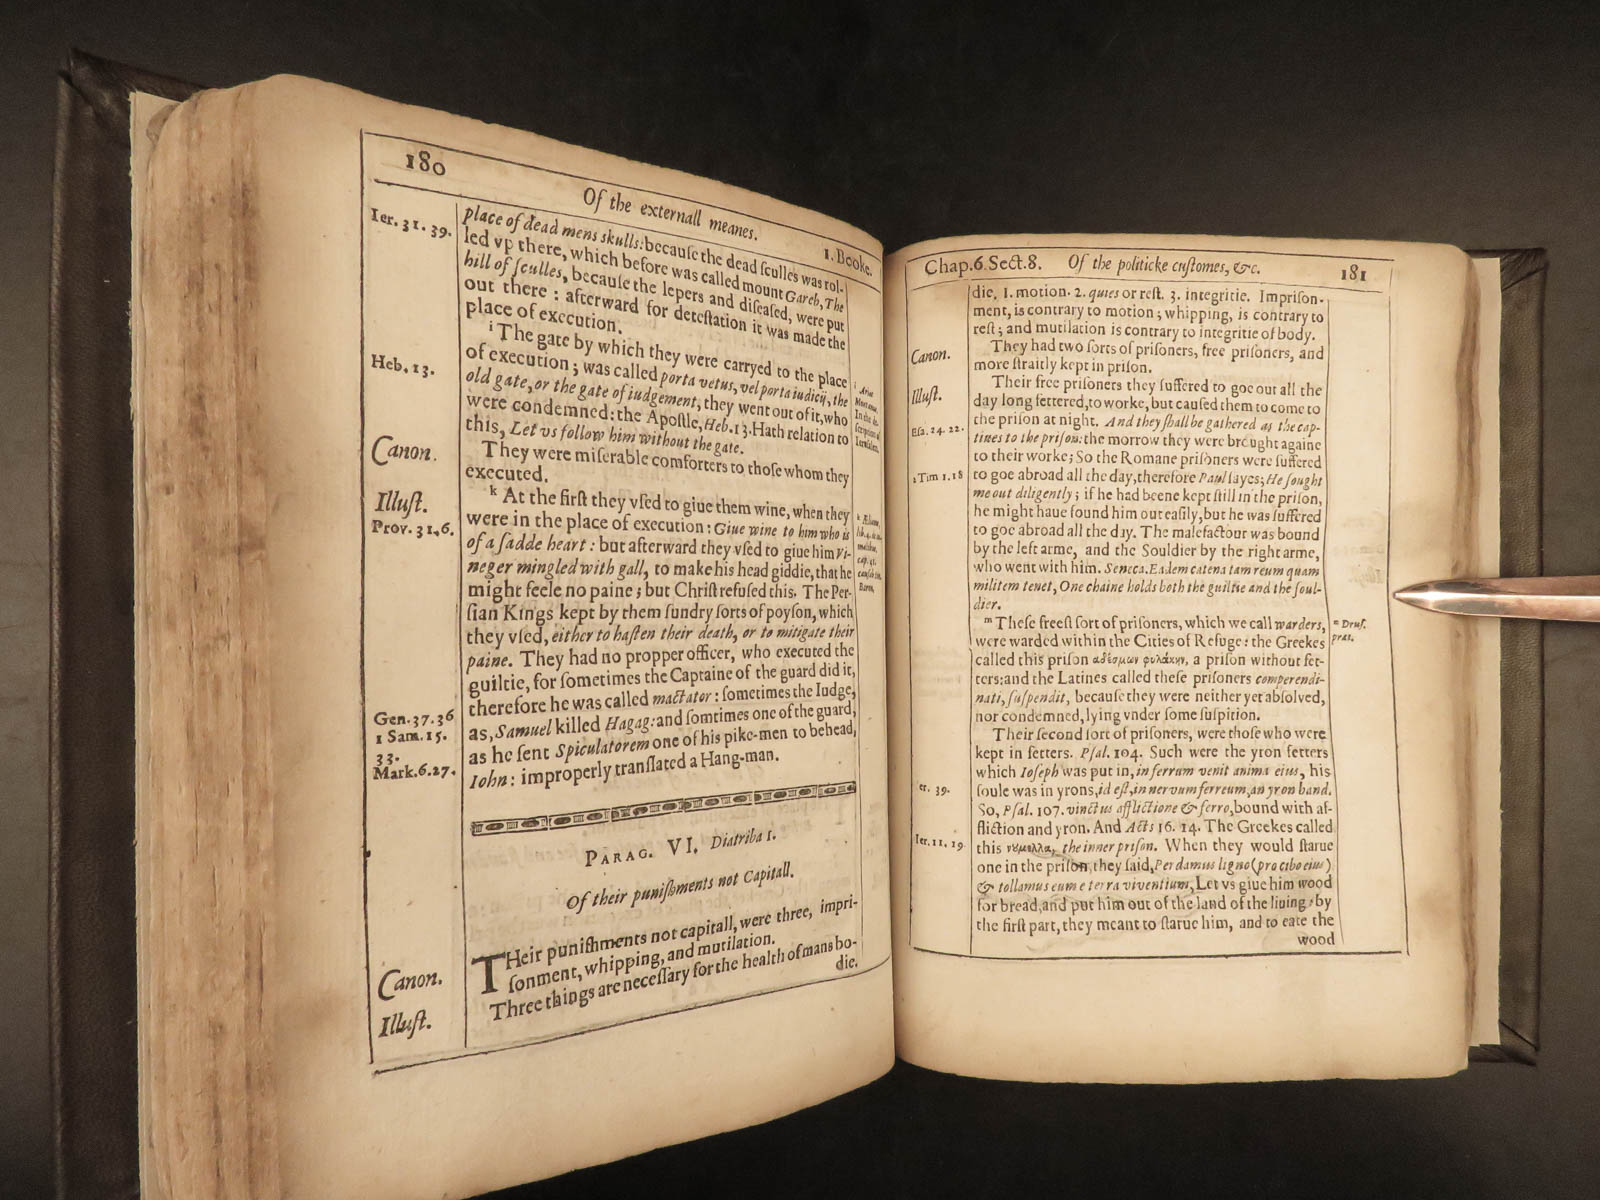 180
Of the externall meanes.
1. Booke.
Ier. 31. 39.
place of dead mens skulls: becauſe the dead ſculles was rol-
led vp there, which before was called mount Gareb, The
hill of ſculles, becauſe the lepers and diſeaſed, were put
out there : afterward for deteſtation it was made the
place of execution.
i The gate by which they were carryed to the place
Heb. 13.
of execution ; was called porta vetus, vel porta iudicij, the
old gate, or the gate of iudgement, they went out of it, who
were condemned: the Apoſtle, Heb. 13. Hath relation to
this, Let vs follow him without the gate.
Canon.
They were miſerable comforters to thoſe whom they
executed.
Illuſt.
k At the firſt they vſed to giue them wine, when they
Prov. 31, 6.
were in the place of execution : Giue wine to him who is
of a ſadde heart : but afterward they vſed to giue him Vi-
neger mingled with gall, to make his head giddie, that he
might feele no paine ; but Chriſt refuſed this. The Per-
ſian Kings kept by them ſundry ſorts of poyſon, which
they vſed, either to haſten their death, or to mitigate their
paine. They had no propper officer, who executed the
guiltie, for ſometimes the Captaine of the guard did it,
Gen. 37. 36
therefore he was called mactator : ſometimes the Iudge,
1 Sam. 15.
33.
as, Samuel killed Hagag: and ſomtimes one of the guard,
as he ſent Spiculatorem one of his pike-men to behead,
Mark. 6. 27.
Iohn : improperly tranſlated a Hang-man.
PARAG. VI. Diatriba 1.
Of their puniſhments not Capitall.
Canon.
THeir puniſhments not capitall, were three, impri-
ſonment, whipping, and mutilation.
Illuſt.
Three things are neceſſary for the health of mans bo-
die.
Chap. 6. Sect. 8. Of the politicke cuſtomes, &c. 181
die, 1. motion. 2. quies or reſt. 3. integritie. Impriſon-
ment, is contrary to motion ; whipping, is contrary to
reſt ; and mutilation is contrary to integritie of body.
Canon.
They had two ſorts of priſoners, free priſoners, and
more ſtraitly kept in priſon.
Illuſt.
Their free priſoners they ſuffered to goe out all the
day long fettered, to worke, but cauſed them to come to
Eſa. 24. 22.
the priſon at night. And they ſhall be gathered as the cap-
tines to the priſon: the morrow they were brought againe
to their worke; So the Romane priſoners were ſuffered
2 Tim 1. 18
to goe abroad all the day, therefore Paul ſayes; He ſought
me out diligently ; if he had beene kept ſtill in the priſon,
he might haue found him out eaſily, but he was ſuffered
to goe abroad all the day. The malefactour was bound
by the left arme, and the Souldier by the right arme,
who went with him. Seneca. Eadem catena tam reum quam
militem tenet, One chaine holds both the guiltie and the ſoul-
dier.
m Theſe freeſt ſort of priſoners, which we call warders,
m Druſ.
præt.
were warded within the Cities of Refuge: the Greekes
called this priſon ἀδέσμων φυλάκην, a priſon without fet-
ters: and the Latines called theſe priſoners comperendi-
nati, ſuſpendit, becauſe they were neither yet abſolved,
nor condemned, lying vnder ſome ſuſpition.
Their ſecond ſort of priſoners, were thoſe who were
kept in fetters. Pſal. 104. Such were the yron fetters
which Ioſeph was put in, in ferrum venit anima eius, his
er. 39.
ſoule was in yrons, id eſt, in nervum ferreum, an yron band.
So, Pſal. 107. vinctus afflictione & ferro, bound with af-
fliction and yron. And Acts 16. 14. The Greekes called
Ier. 11. 19
this the inner priſon. When they would ſtarue
one in the priſon, they ſaid, Perdamus ligno (pro cibo eius)
& tollamus eum e terra viventium, Let vs giue him wood
for bread, and put him out of the land of the liuing: by
the firſt part, they meant to ſtarue him, and to eate the
wood